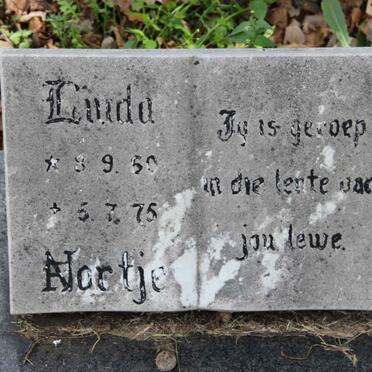 Linda
* 8 9. 60
† 5. 7. 75
Nortje
Jy is geroep
in die lente van
jou lewe.